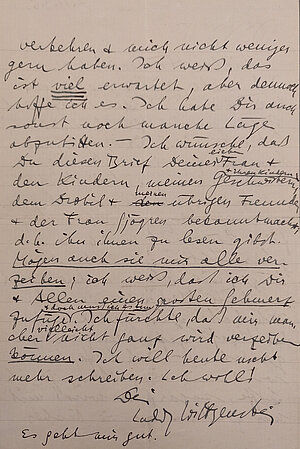 verkehren & mich nicht weniger
gern haben. Ich weiß, das
ist viel erwartet, aber dennoch
hoffe ich es. Ich habe Dir auch
sonst noch manche Lüge
abzubitten. – Ich wünsche, daß
Du diesen Brief Deiner lieben Frau &
den Kindern, meinen Geschwistern & ihren Kindern,
dem Drobil & meinen übrigen Freunden
& der Frau Sjögren bekanntmachst,
d.h. ihn ihnen zu lesen gibst.
Mögen auch sie mir alle ver-
zeihen; ich weiß, daß ich Dir
& Allen einen großen Schmerz
zufüge. Ich fürchte, daß mir man-
cher vielleicht nicht ganz wird verzeihen
können. Ich will heute nicht
mehr schreiben. Leb wohl!
Dein
Ludwig Wittgenstein
Es geht mir gut.